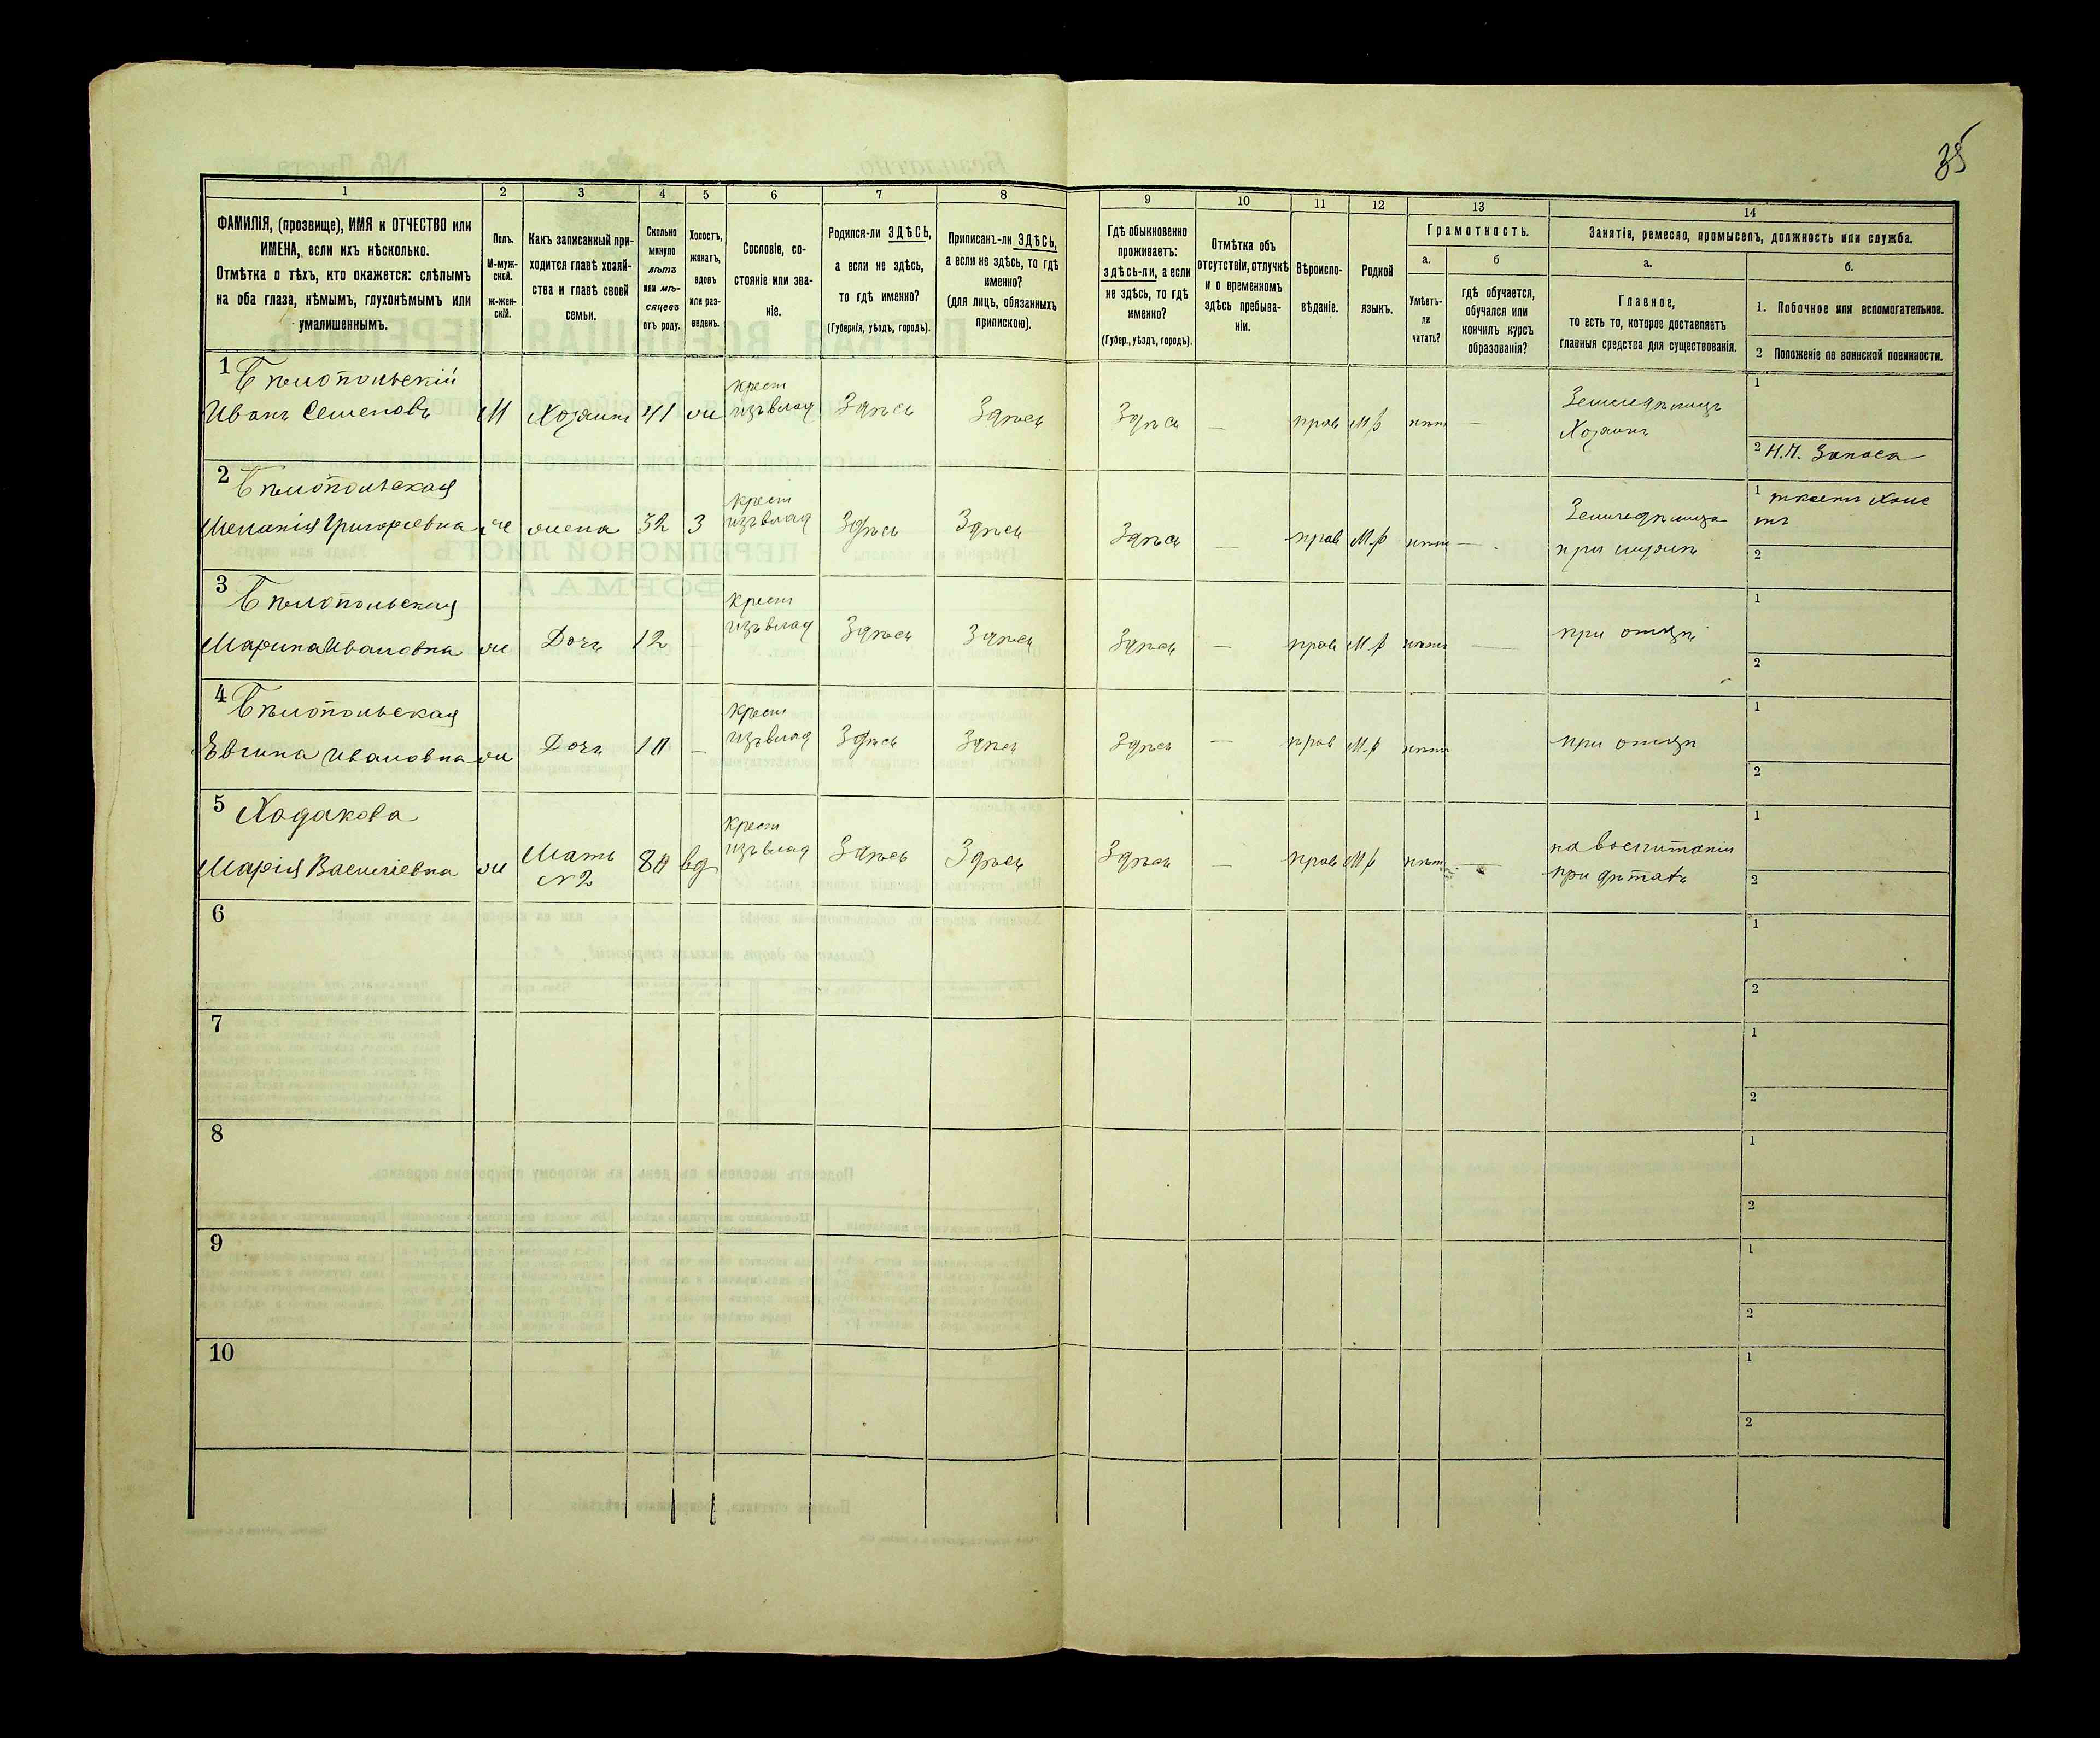 35
1 2 3 4 5 6 7 8 9 10 11 12 13 14
ФАМИЛІЯ, (прозвище), ИМЯ и ОТЧЕСТВО или
ИМЕНА, если ихъ нѣсколько.
Отмѣтка о тѣхъ, кто окажется: слѣпымъ
на оба глаза, нѣмымъ, глухонѣмымъ или
умалишеннымъ.
Полъ.
М-муж-
ской.
ж-жен-
скій.
Какъ записанный при-
ходится главѣ хозяй-
ства и главѣ своей
семьи.
Сколько
минуло
лѣтъ
или мѣ-
сяцевъ
отъ роду.
Холостъ,
женатъ,
вдовъ
или раз-
веденъ.
Сословіе, со-
стояніе или зва-
ніе.
Родился-ли ЗДѢСЬ,
а если не здѣсь,
то гдѣ именно?
(Губернія, уѣздъ, городъ).
Приписанъ-ли ЗДѢСЬ,
а если не здѣсь, то гдѣ
именно?
(для лицъ, обязанныхъ
припискою).
Гдѣ обыкновенно
проживаетъ:
здѣсь-ли, а если
не здѣсь, то гдѣ
именно?
(Губер., уѣздъ, городъ).
Отмѣтка объ
отсутствіи, отлучкѣ
и о временномъ
здѣсь пребыва-
ніи.
Вѣроиспо-
вѣданіе.
Родной
языкъ.
Грамотность.
а.
Умѣетъ-
ли
читать?
б
гдѣ обучается,
обучался или
кончилъ курсъ
образованія?
Занятія, ремесло, промыселъ, должность или служба.
а.
Главное,
то есть то, которое доставляетъ
главныя средства для существованія.
б.
1. Побочное или вспомогательное.
2 Положеніе по воинской повинности.
1 Бѣлопольскій
Иванъ Семеновъ М Хозяинъ 41 ж Крест изъ влад Здѣсь Здѣсь Здѣсь — прав М.р нѣт — Земледѣлецъ
Хозяинъ
1
2 Н.П. Запаса
2 Бѣлопольская
Меланія Григоріевна ж жена 32 З Крест изъ влад Здѣсь Здѣсь Здѣсь — прав М.р нѣт — Земледѣлица
при мужѣ
1
2
3 Бѣлопольская
Марина Ивановна ж Дочь 12 — Крест изъ влад Здѣсь Здѣсь Здѣсь — прав М.р нѣт — при отцѣ
1
2
4 Бѣлопольская
Ивановна ж Дочь 10 — Крест изъ влад Здѣсь Здѣсь Здѣсь — прав М.р нѣт при отцѣ
1
2
5 Ходакова
Марія Василіевна ж Мать 80 вд Крест изъ влад Здѣсь Здѣсь Здѣсь — прав М.р нѣт —
№2
на воспитаніи
при дѣтахъ
1
2
6
1
2
7
1
2
8
1
2
9
1
2
10
1
2